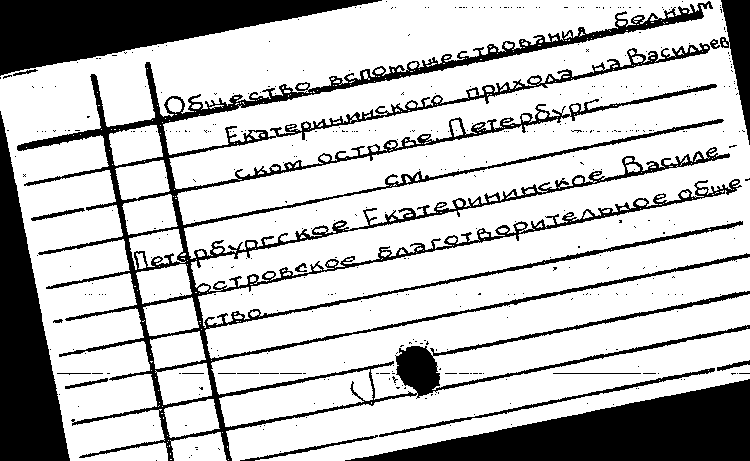 Общество вспомоществования бедным
Екатерининского прихода на Васильев
ском острове Петербург
см.
Петербургское Екатерининское Василе-
островское благотворительное обще-
ство.